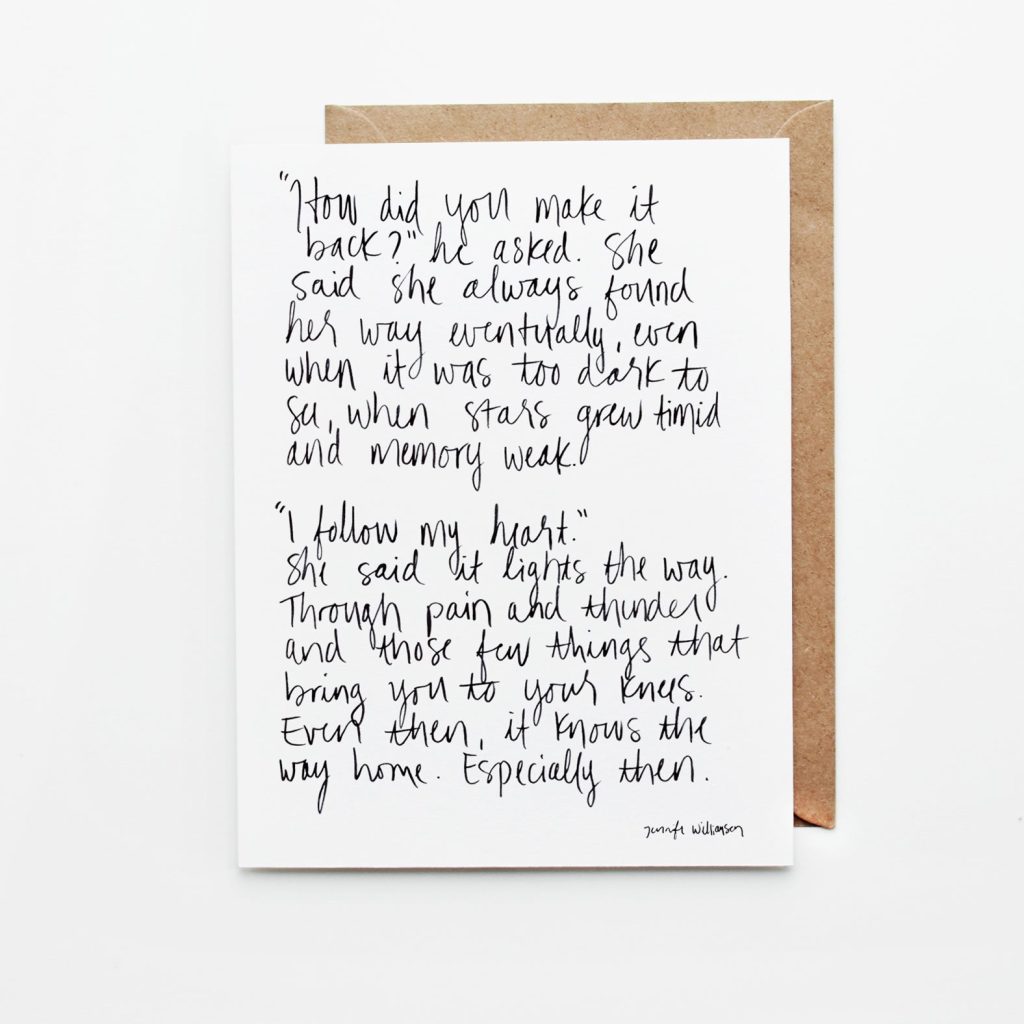 "How did you make it
back?" he asked. She
said she always found
her way eventually, even
when it was too dark to
see, when stars grew timid
and memory weak.
"I follow my heart."
She said it lights the way.
Through pain and thunder
and those few things that
bring you to your knees.
Even then, it knows the
way home. Especially then.
Jennifer Williamson